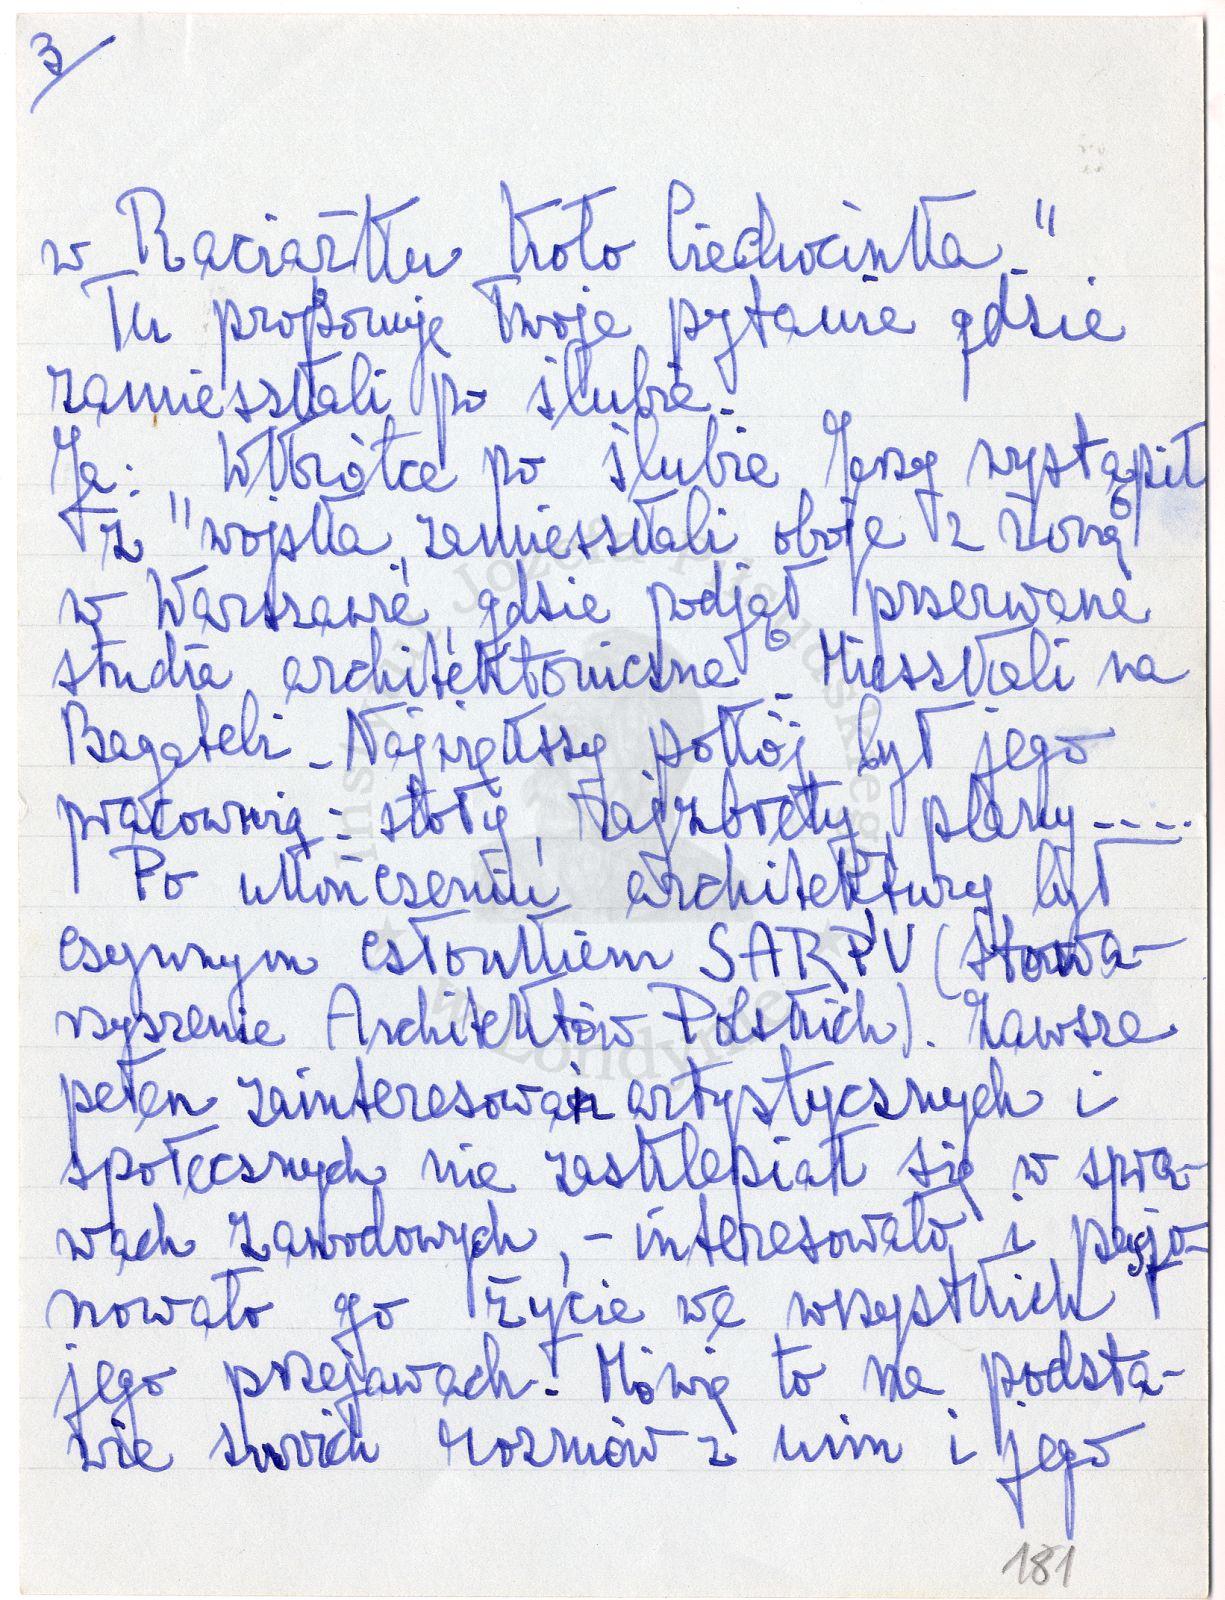 3
w Raciążku koło Ciechocinka."
Tu proponuję Twoje pytanie gdzie
zamieszkali po ślubie.
Ja: Wkrótce po ślubie Jerzy wystąpił
z "wojska, zamieszkali oboje z żoną
w Warszawie, gdzie podjął przerwane
studia architektoniczne. Mieszkali na
Bagateli. Największy pokój był jego
pracownią: stoły, rajzbrety, plany....
Po ukończeniu architektury był
czynnym członkiem SARP'U (Stowa-
rzyszenie Architektów Polskich). Zawsze
pełen zainteresowań artystycznych i
społecznych nie zasklepiał się w spra-
wach zawodowych, - interesowało i pasjo-
nowało go życie we wszystkich
jego przejawach. Mówię to na podsta-
wie swoich rozmów z nim i jego
181
Instytut Józefa Piłsudskiego
w Londynie